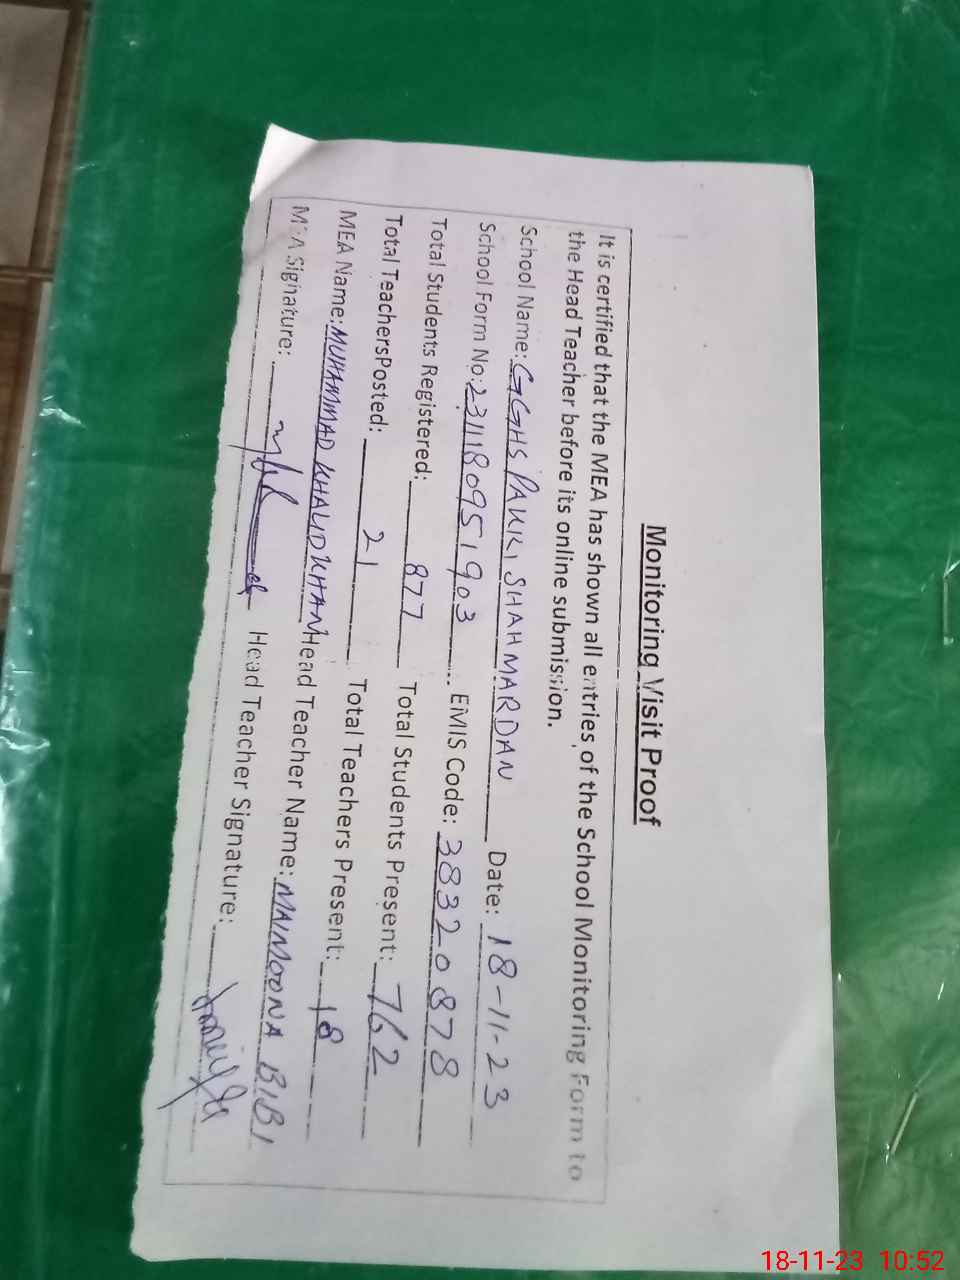 Monitoring Visit Proof
It is certified that the MEA has shown all entries of the School Monitoring Form to
the Head Teacher before its online submission.
School Name: GGHS PAKKI SHAH MARDAN Date: 18-11-23
School Form No: 2311180951903 EMIS Code: 38320878
Total Students Registered: 877 Total Students Present: 762
Total TeachersPosted: 21 Total Teachers Present: 18
MEA Name: MUHAMMAD KHALID KHAN Head Teacher Name: MAIMOONA BIBI
MEA Signature: Head Teacher Signature:
18-11-23 10:52